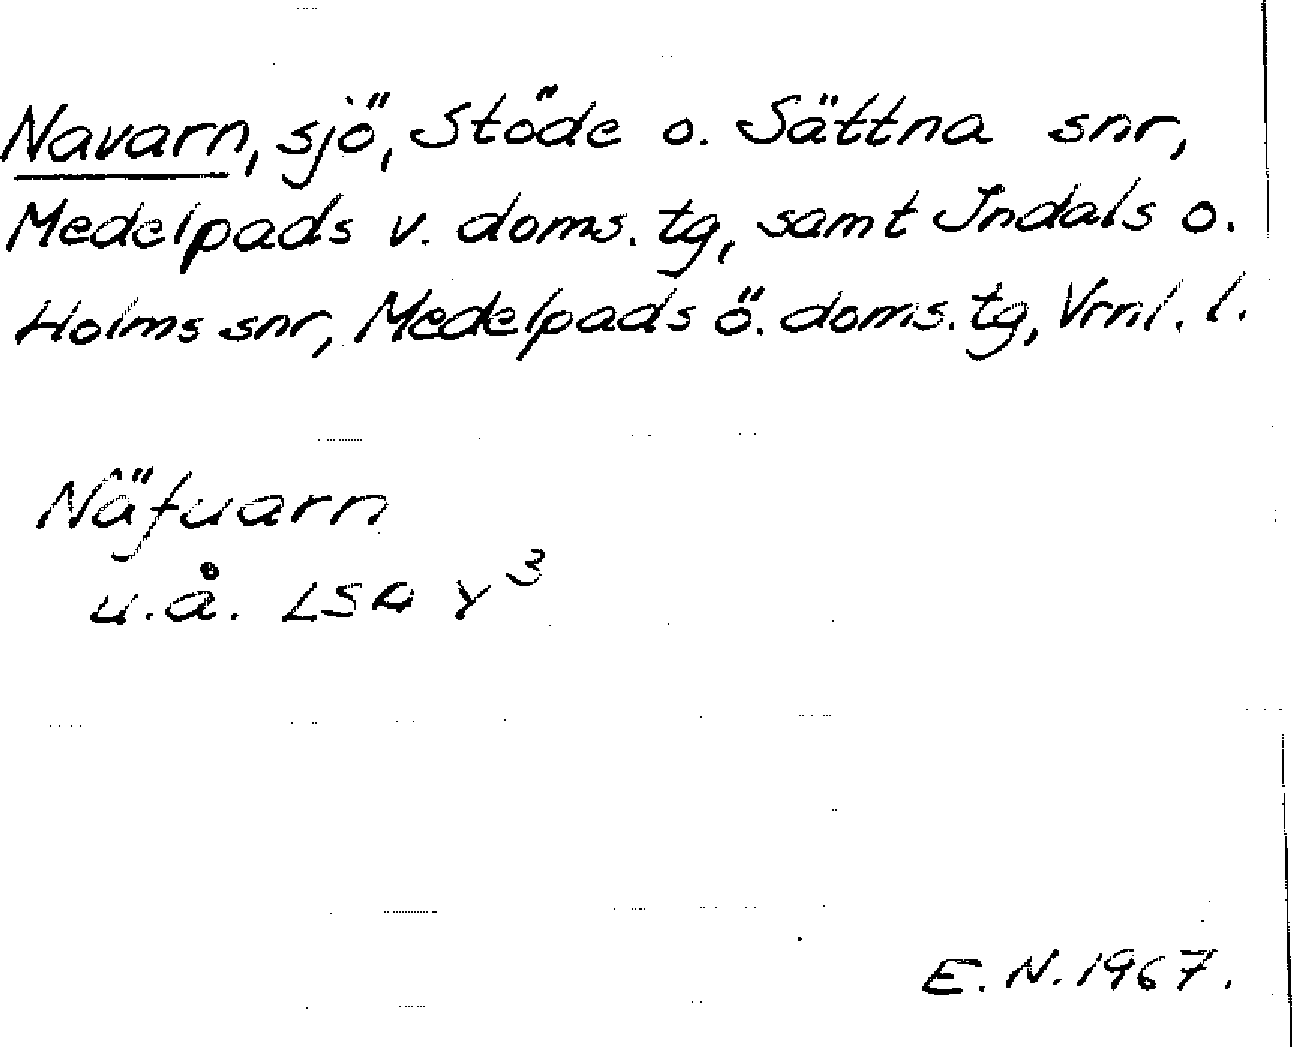 Navarn, sjö, Stöde o. Sättna snr,
Medelpads v. doms. tg, samt Indals o.
Holms snr, Medelpads ö. doms. tg, Vrnl. l.
Näfuarn
u.å. LSA Y3
E. N. 1967.